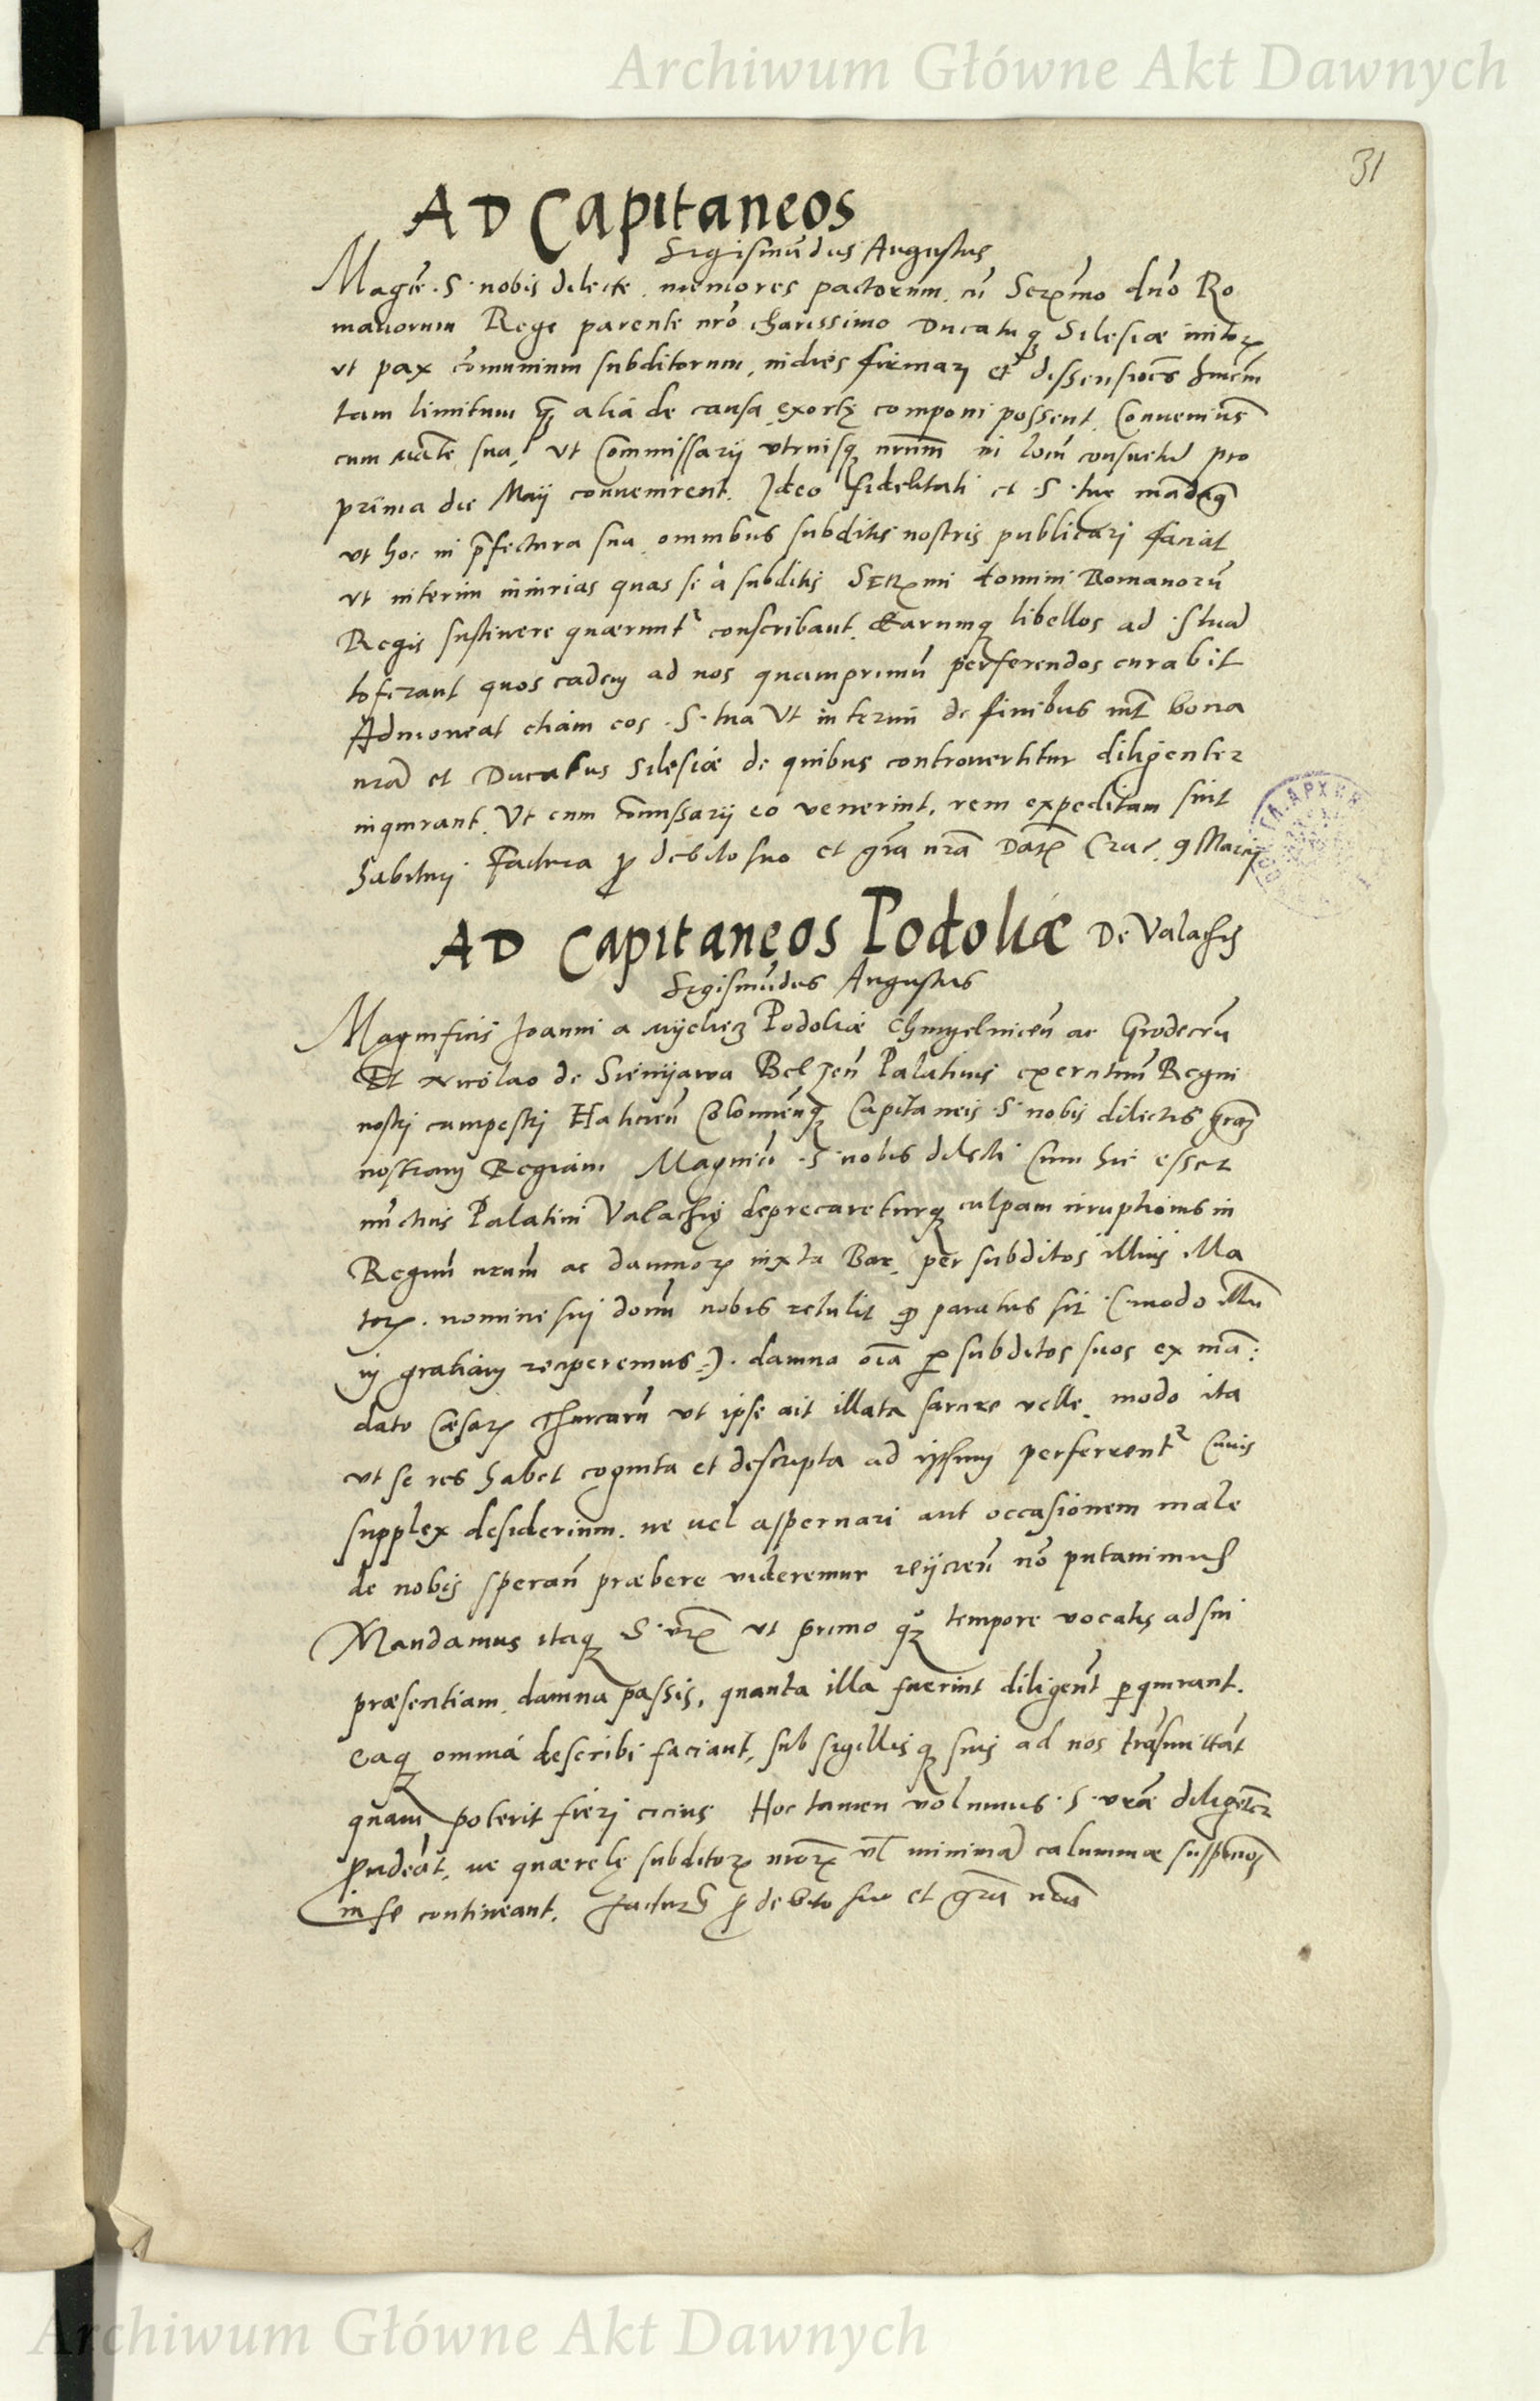 Archiwum Główne Akt Dawnych
31
AD Capitaneos
Sigismūdus Augustus
Magcē . S . nobis dilecte . memores pactorum cū Serᵐo dno Ro
manorum Rege parente nrō charissimo Ducatuq Silesiæ initoꝝ
ut pax cōmunium subditorum, indies firmari et dissensiones
tam limitum alia de causa exortę componi possent. Convenimus
cum sua, ut Commissarij utriusq nrūm in locū consuetū pro
prima die Maij convenirent. Ideo fidelitati et S . tuę mādamꝰ
ut hoc in pfectura sua omnibus subditis nostris publicari faciat
ut interim iniurias quas se à subditis Serᵐi domini Romanorū
Regis sustinere quærunt conscribant. Earumq libellos ad S tuā
deferant quos eadem ad nos quamprimū perferendos curabit
Admoneat etiam eos . S . tua Ut interim de finibus int bona
nrā et Ducatus Silesiæ de quibus controvertitur diligenter
inquirant. Ut cum cōmissarij eo venerint, rem expeditam sint
habituri Factura ꝓ debito suo et grā nrā Datꝭ Crac. 9 Marcij
AD Capitaneos Podoliæ De Valachis
Sigismūdus Augustus
Magnificis Joanni a Podoliæ Chmyelnicen̄ ac Grodecen̄
Et Nicolao de Sienijawa Belzen̄ Palatinis exercitum Regni
nostri campestri Halicien̄ Colomien̄q Capitaneis S . nobis dilectis grām
nostram Regiam Magnici . S . nobis dilecti Cum hic esset
nūctius Palatini Valachię deprecareturq culpam irruptionis in
Regnū nrūm ac damnoꝝ iuxta Bar, per subditos illius illa
toꝝ . nomine sui domī nobis retulit ꝙ paratus sit (modo illū
in gratiam reciperemus:). damna oīa ꝑ subditos suos ex mā:
dato Cæsaꝝ Thurcarū ut ipse ait illata sarcire velle, modo ita
ut se res habet cognita et descripta ad ipsum perferrent Cuius
supplex desiderium. ne vel aspernari aut occasionem male
de nobis speran̄ præbere videremur reijcien̄ nō putavimus
Mandamus itaq S . vrꝭ ut primo qꝫ tempore vocatis ad sui
præsentiam, damna passis, quanta illa fuerint diligent ꝑquirant.
eaq omnia describi faciant, sub sigillisq suis ad nos trāsmittāt
quam poterit fieri cicius Hoc tamen volumus . S . vræ diligent
ꝓvideāt, ne quærelę subditoꝝ nroꝝ vl minimā calumniæ suspitionē
in se contineant. Facturæ ꝓ debito suo et grā nrā
Archiwum Główne Akt Dawnych